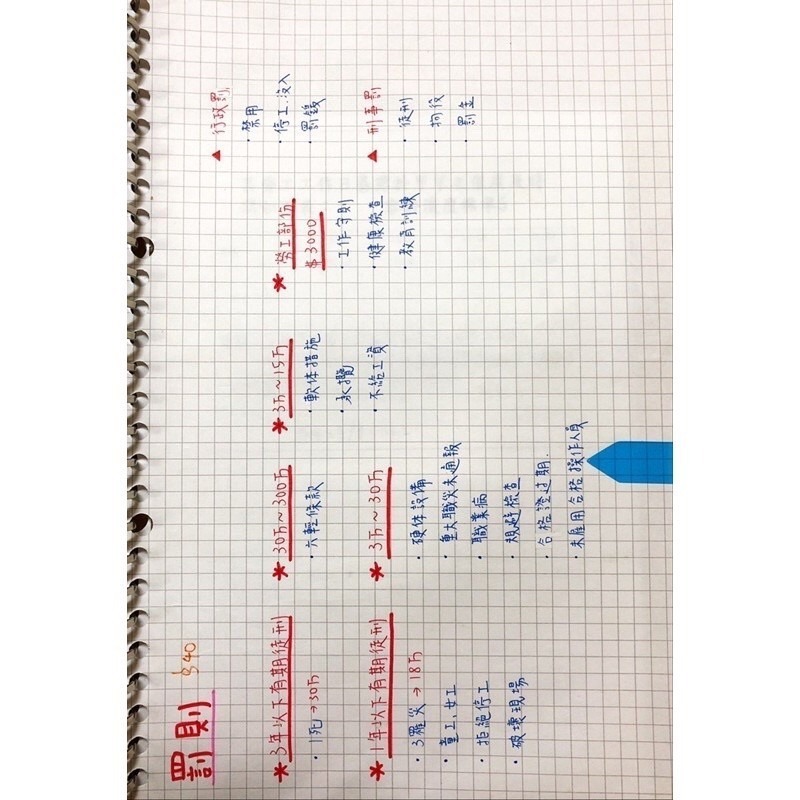 罰則 §40
* 3年以下有期徒刑
· 1死 → 30万
* 1年以下有期徒刑
· 3罹災 → 18万
· 童工、女工
· 拒絕停工
· 破壞現場
* 30万~300万
· 六輕條款
* 3万~30万
· 硬体設備
· 重大職災未通報
· 職業病
· 規避檢查
· 合格證過期
· 未雇用合格操作人員
* 3万~15万
· 軟体措施
· 承攬
· 不給工資
* 勞工部份
$3000
· 工作守則
· 健康檢查
· 教育訓練
▲ 行政罰
· 禁用
· 停工、沒入
· 罰鍰
▲ 刑事罰
· 徒刑
· 拘役
· 罰金